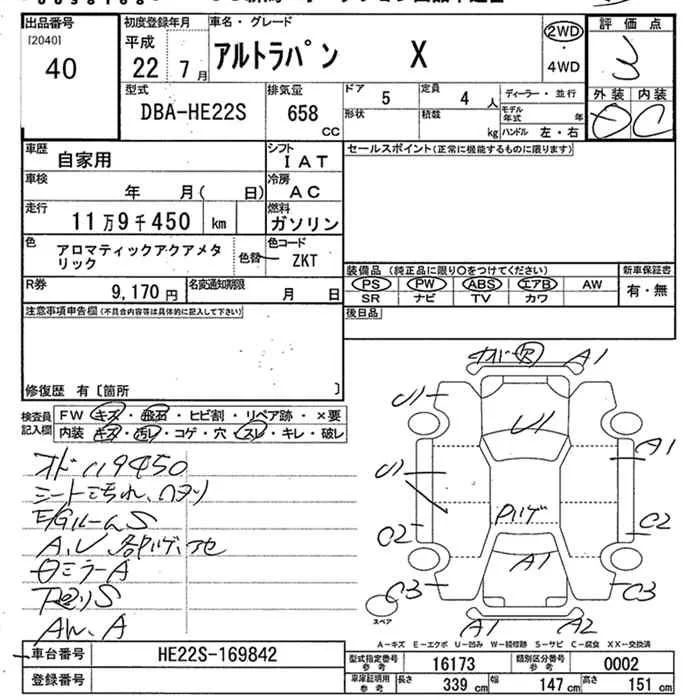 出品番号
[2040]
40
初度登録年月
平成
22 7月
車名・グレード
アルトラパン X
2WD
4WD
評価点
3
外装 内装
D C
型式
DBA-HE22S
排気量
658
CC
ドア
5
定員
4人
形状
積載
kg
ディーラー・並行
モデル年式 年
ハンドル 左・右
車歴
自家用
シフト
IAT
セールスポイント(正常に機能するものに限ります)
車検
年 月( 日)
冷房
AC
走行
11万9千450 km
燃料
ガソリン
色
アロマティックアクアメタリック
色替
色コード
ZKT
装備品 (純正品に限り○をつけてください)
PS PW ABS エアB AW
SR ナビ TV カワ
新車保証書
有・無
R券
9,170円
名変通知期限
月 日
後日品
注意事項申告欄(不具合内容等は具体的に記入して下さい)
修復歴 有〔箇所 〕
検査員記入欄
FW キズ・飛石・ヒビ割・リペア跡・×要
内装 キズ・汚レ・コゲ・穴・スレ・キレ・破レ
オド119450
シート汚れ、
E/GルームS
ミラーA
A1
U1
U1
A1
U1
A1
C2
C2
C3
C3
A1
A2
スペア
A-キズ E-エクボ U-凹み W-補修跡 S-サビ C-腐食 XX-交換済
車台番号
HE22S-169842
登録番号
型式指定番号 参考
16173
類別区分番号 参考
0002
車庫証明用 参考
長さ 339cm 幅 147cm 高さ 151cm